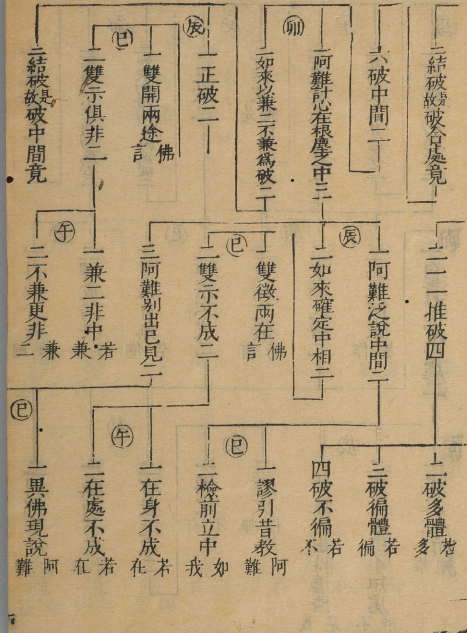 二結破是故破合處竟
六破中間二
卯
一阿難計心在根塵之中三
二如來以兼二不兼為破二
辰
一正破二
一雙開兩途
佛言
巳
二雙示俱非二
二結破是故破中間竟
二一一推破四
辰
一阿難泛說中間二
二如來確定中相二
一雙徵兩在
佛言
巳
二雙示不成二
三阿難別出己見二
一兼二非中
若兼
午
二不兼更非
兼二
二破多體
若多
三破徧體
若徧
四破不徧
若不
一謬引昔教
阿難
巳
二檢前立中
如我
一在身不成
若在
午
二在處不成
若在
一異佛現說
阿難
巳